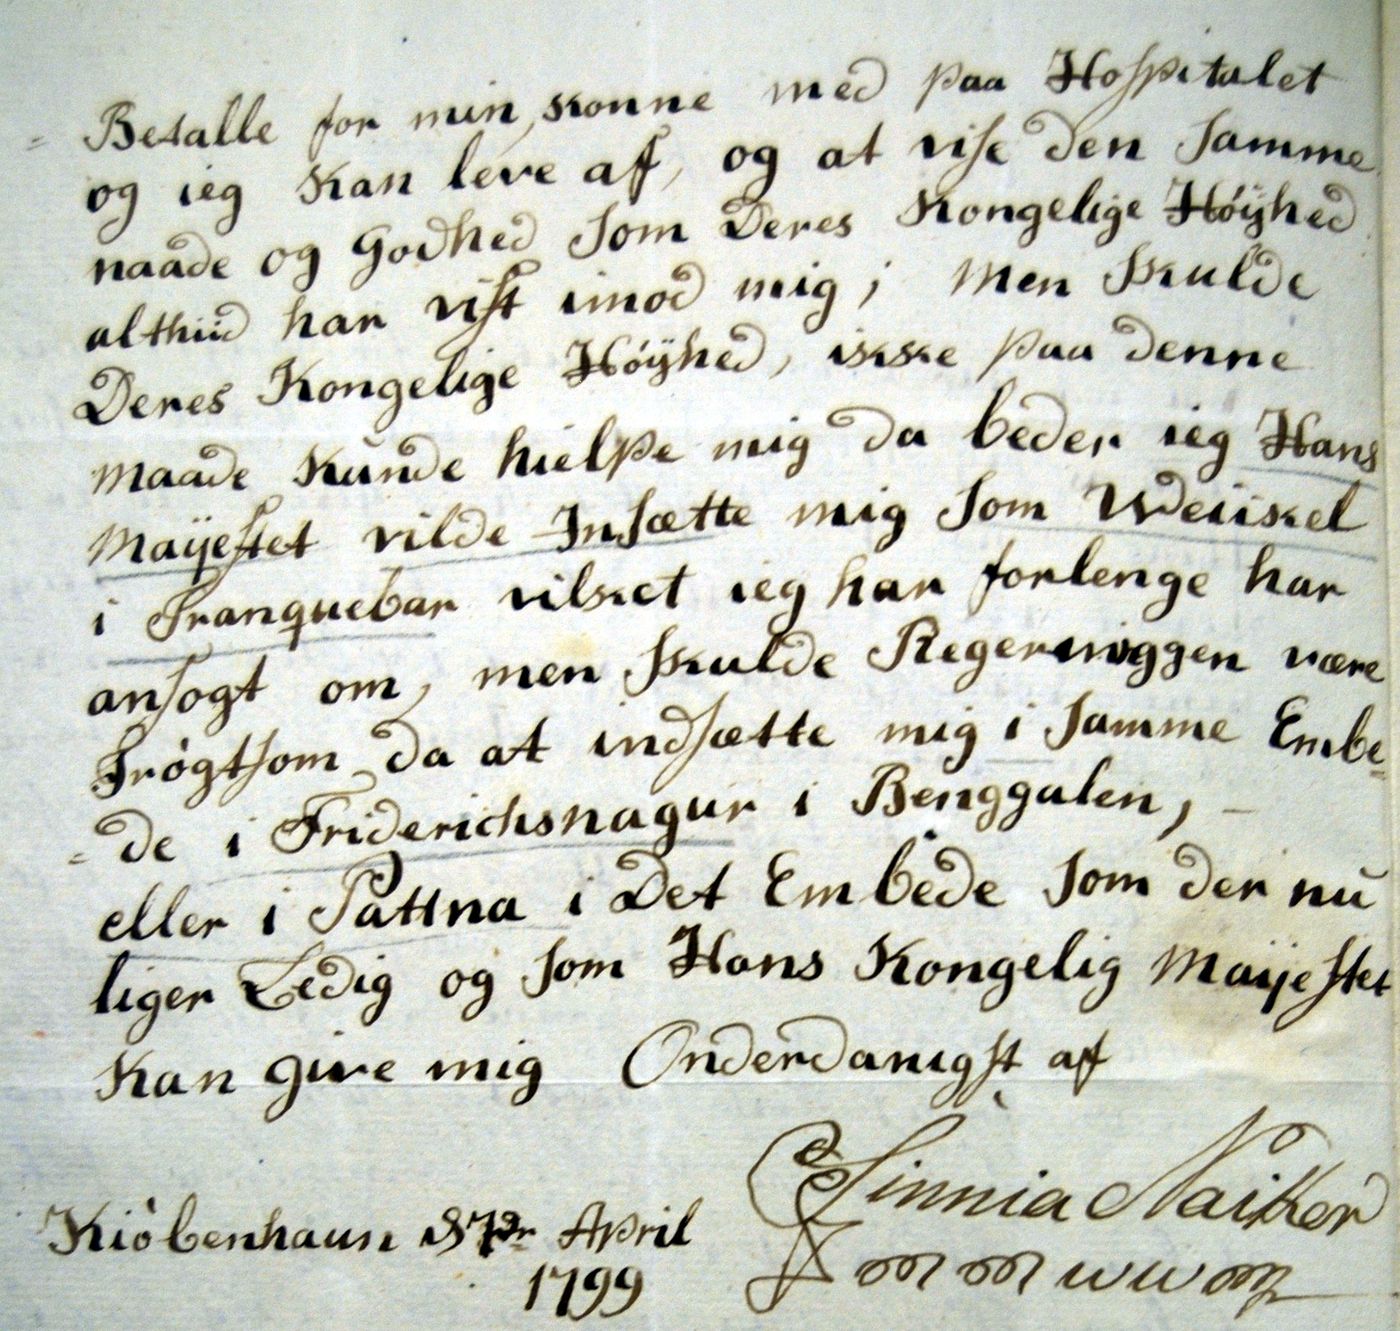 - Betalle for min, konne med paa Hospitalet
og ieg Kan leve af, og at vise den Samme
naade og Godhed som Deres Kongelige Høÿhed
althiid har vist imod mig; Men skulde
Deres Kongelige Høÿhed, ikke paa denne
Maade Kunde hielpe mig da beder ieg Hans
Mayestet vilde Insætte mig som Weiikel
i Tranquebar vilket ieg har forlenge har
ansogt om, men skulde Regerniggen være
Frøgtsom da at indsætte mig i Samme Embe=
= de i Friderichsnagur i Benggalen, -
eller i Pattna i Det Embede Som der nu
liger Ledig og som Hans Kongelig Mayestet
Kan give mig Onderdanigst af
Sinnia Naiker
Kiøbenhaun April
1799